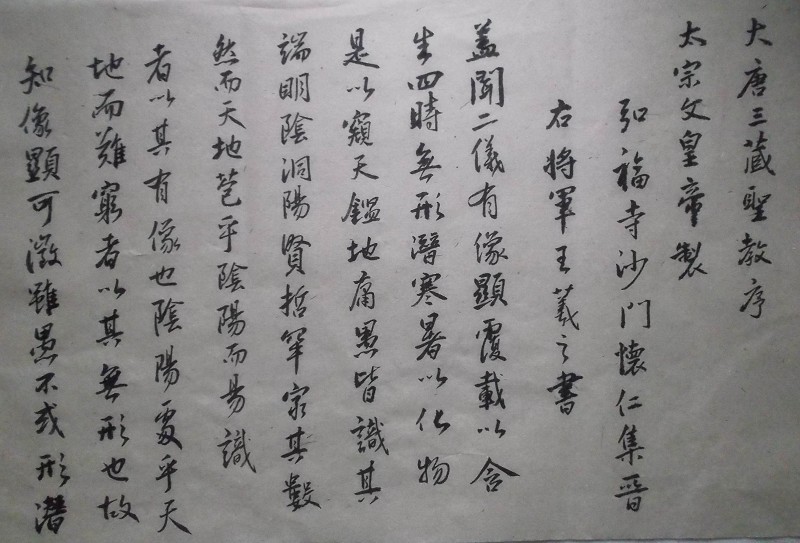 大唐三藏聖教序
太宗文皇帝製
弘福寺沙門懷仁集晉
右將軍王羲之書
蓋聞二儀有像顯覆載以含
生四時無形潛寒暑以化物
是以窺天鑑地庸愚皆識其
端明陰洞陽賢哲罕窮其數
然而天地苞乎陰陽而易識
者以其有像也陰陽處乎天
地而難窮者以其無形也故
知像顯可徵雖愚不或形潛